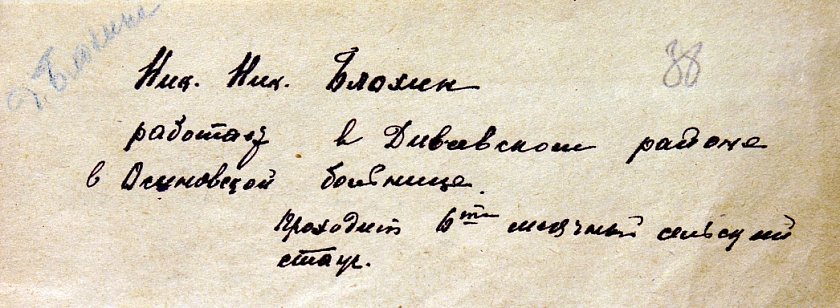 Блохин
38
Ник. Ник. Блохин
работает в Дивеевском районе
в Осиновской больнице.
проходит 6ти месячный сельский
стаж.